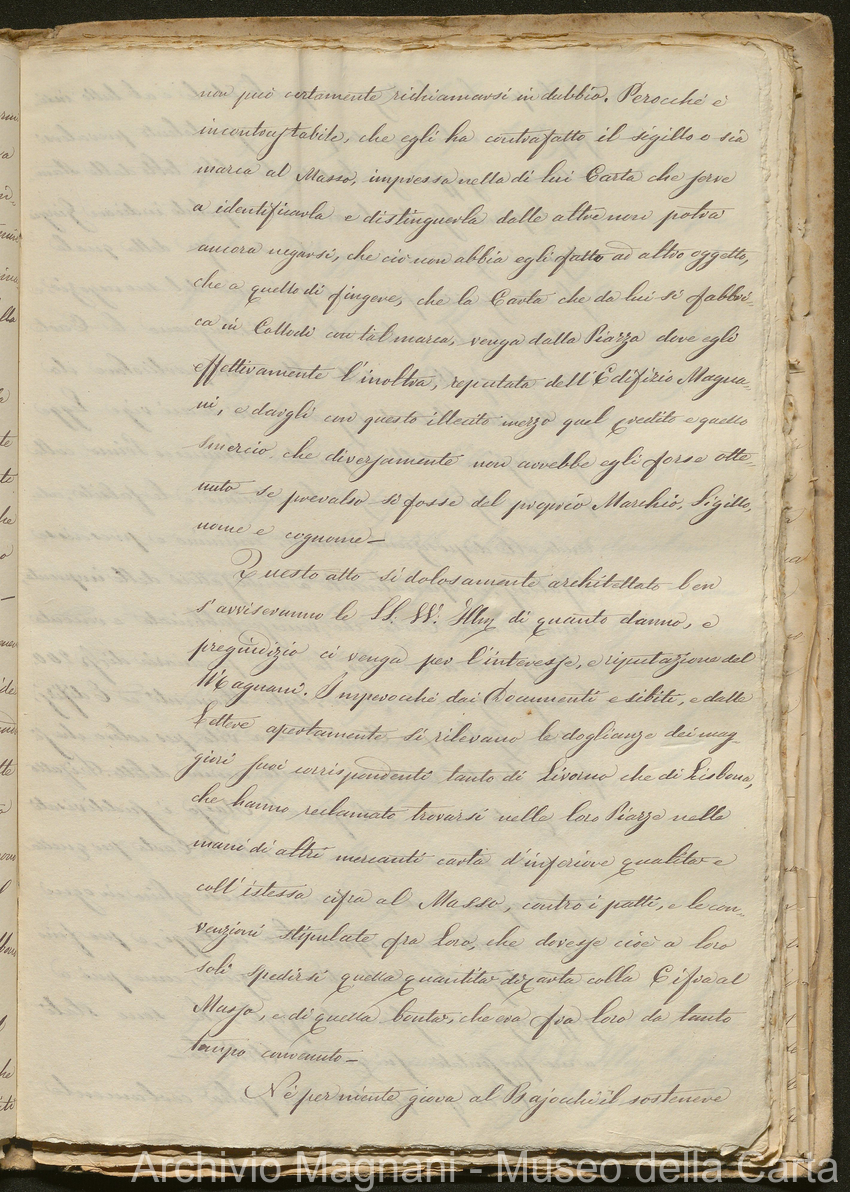 non può certamente richiamarsi in dubbio. Perocché è
incontrastabile, che egli ha contrafatto il sigillo o sia
marca al Masso, impressa nella di lui Carta che serve
a identificarla e distinguerla dalle altre non potrà
ancora negarsi, che ciò non abbia egli fatto ad altro oggetto,
che a quello di fingere, che la Carta che da lui si fabbri-
ca in Collodi con tal marca, venga dalla Piazza dove egli
effettivamente l'inoltra, reputata dell'Edifizio Magna-
ni, e dargli con questo illecito mezzo quel credito e quello
smercio che diversamente non avrebbe egli forse otte-
nuto se prevalso si fosse del proprio Marchio, Sigillo,
nome e cognome —
Questo atto sì dolosamente architettato ben
s'avviseranno le SS. VV. Illme di quanto danno, e
pregiudizio ci venga per l'interesse, e riputazione del
Magnani. Imperocché dai Documenti esibiti, e dalle
Lettere apertamente si rilevano le doglianze dei mag-
giori suoi corrispondenti tanto di Livorno che di Lisbona,
che hanno reclamato trovarsi nelle loro Piazze nelle
mani di altri mercanti carta d'inferiore qualità e
coll'istessa cifra al Masso, contro i patti, e le con-
venzioni stipulate fra Loro, che dovesse cioè a loro
soli spedirsi quella quantità di carta colla Cifra al
Masso, e di quella bontà, che era fra loro da tanto
tempo convenuto —
Né per niente giova al Bajocchi il sostenere
Archivio Magnani - Museo della Carta